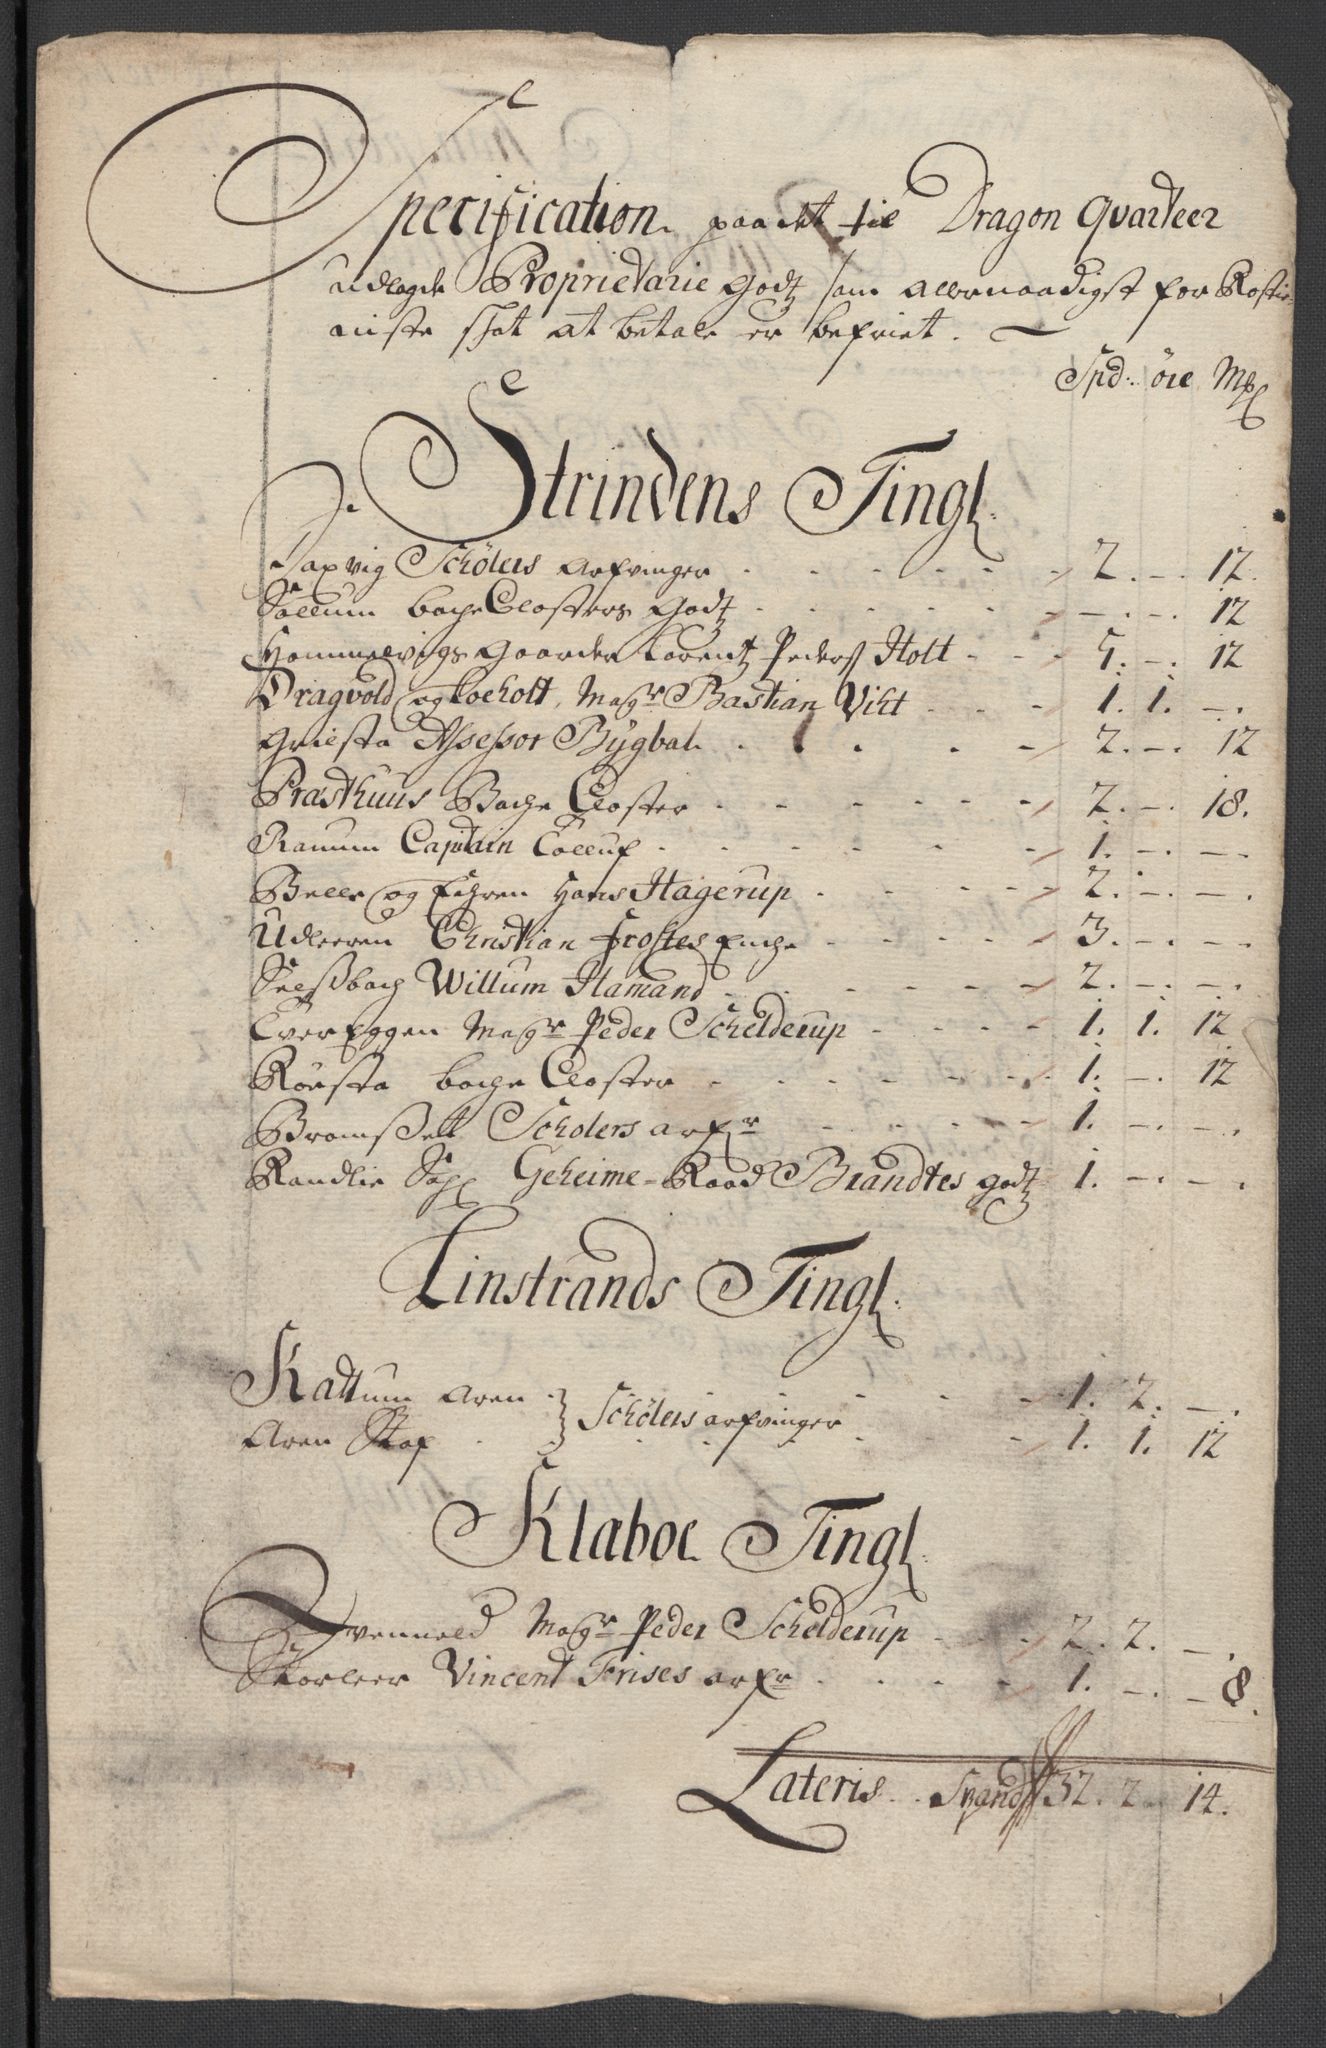 Specification paa det til Dragon Quarteer
udlagde Proprietarie Godtz som allernaadigst for Rostie
niste skat at betale er befriet.
Spd: öre Mk
Strindens Tingl.
Saxvig Schölers Arfvinger 2. - 12.
Sallum bache Closters Godtz - - 12
Hommelvigs Gaarden Lorentz Peders Holt 5. - 12
Dragvold og Loeholt, Magr Bastian Viht 1. 1. -
Griesta Assessor Bÿgbal 2. - 12
Prasthuus Bache Closter 2. - 18.
Ranum Captain Collup 1. - -
Belle og Hans Hagerup 2. - -
Udleeren Christian Frostes Encke 3. - -
Selsbach Willum Hamand 2. - -
Tvereggen Magr Peder Schelderup 1. 1. 12
Rönsta bache Closter 1. - 12
Bromset Scholers arfr 1. - -
Randlie Sal. Geheime-Raad Brandtes godtz 1. - -
Leinstrands Tingl.
Kattum Aren } Schölers arfvinger 1. 2. -
Aren Skaf 1. 1. 12
Klaboe Tingl.
Tvennald Magr Peder Schelderup 2. 2. -
Storleer Vincent Frises arfr 1. - 8.
Lateris. Spand 32. 2 14.